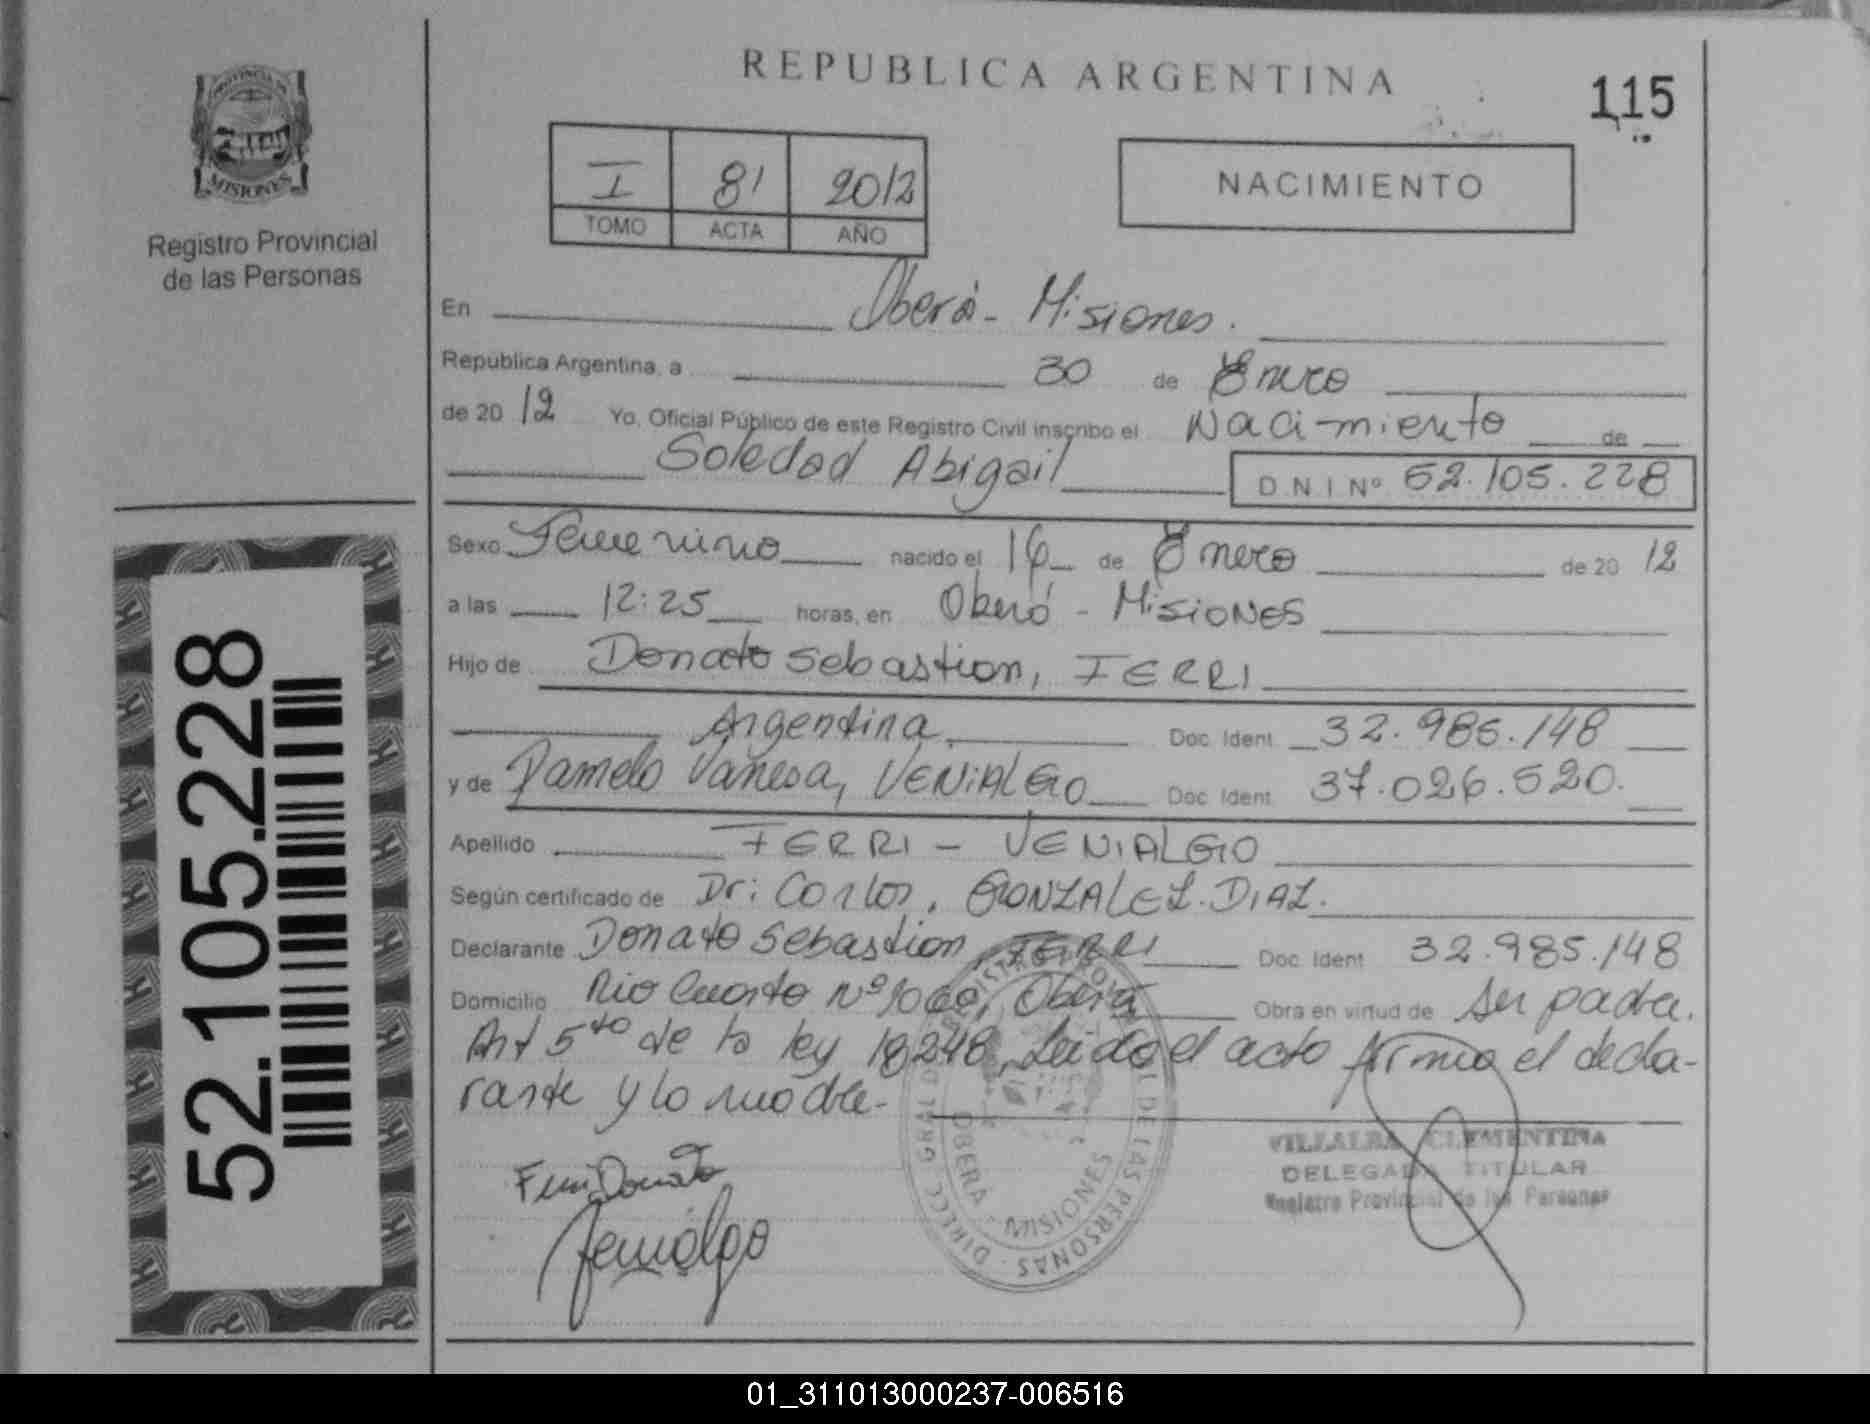 REPUBLICA ARGENTINA
115
PROVINCIA DE
MISIONES
Registro Provincial
de las Personas
I 81 2012
TOMO ACTA AÑO
NACIMIENTO
En Oberá - Misiones.
Republica Argentina, a 30 de Enero
de 20 12 Yo, Oficial Público de este Registro Civil inscribo el Nacimiento de
Soledad Abigail D.N.I Nº 52.105.228
Sexo Femenino nacido el 16 de Enero de 20 12
a las 12:25 horas, en Oberá - Misiones
Hijo de Donato Sebastian, FERRI
Argentina. Doc. Ident. 32.985.148
y de Pamela Vanesa, VENIALGO Doc. Ident. 37.026.520.
Apellido FERRI - VENIALGO
Según certificado de Dr: Carlos, GONZALEZ. DIAZ.
Declarante Donato Sebastian, FERRI Doc. Ident. 32.985.148
Domicilio Rio Cuarto Nº, Oberá Obra en virtud de ser padre.
Art 5to de la ley 18248, Leido el acto firma el decla-
rante y la madre.-
Ferri Donato
Venialgo
OBERA - MISIONES
DE LAS PERSONAS - DIRECC GRAL
VILLALBA CLEMENTINA
DELEGADA TITULAR
Registro Provincial de las Personas
52.105.228
01_311013000237-006516